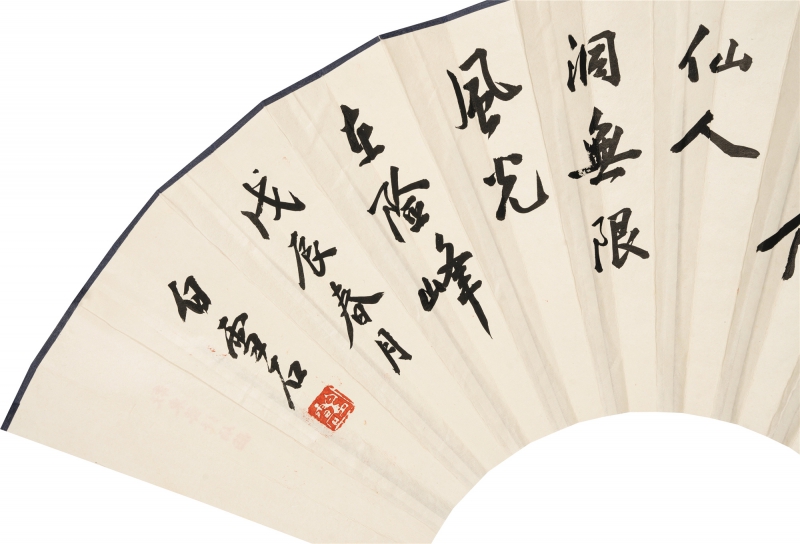 仙人
洞無限
風光
在险峰
戊辰春月
白雪石